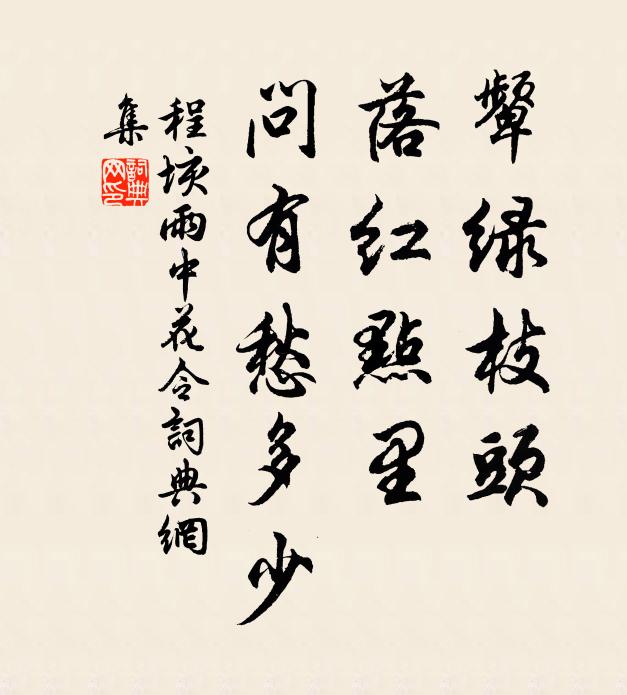 顰綠枝頭
落紅點里
問有愁多少
程垓雨中花令詞典網
集
詞典
網印